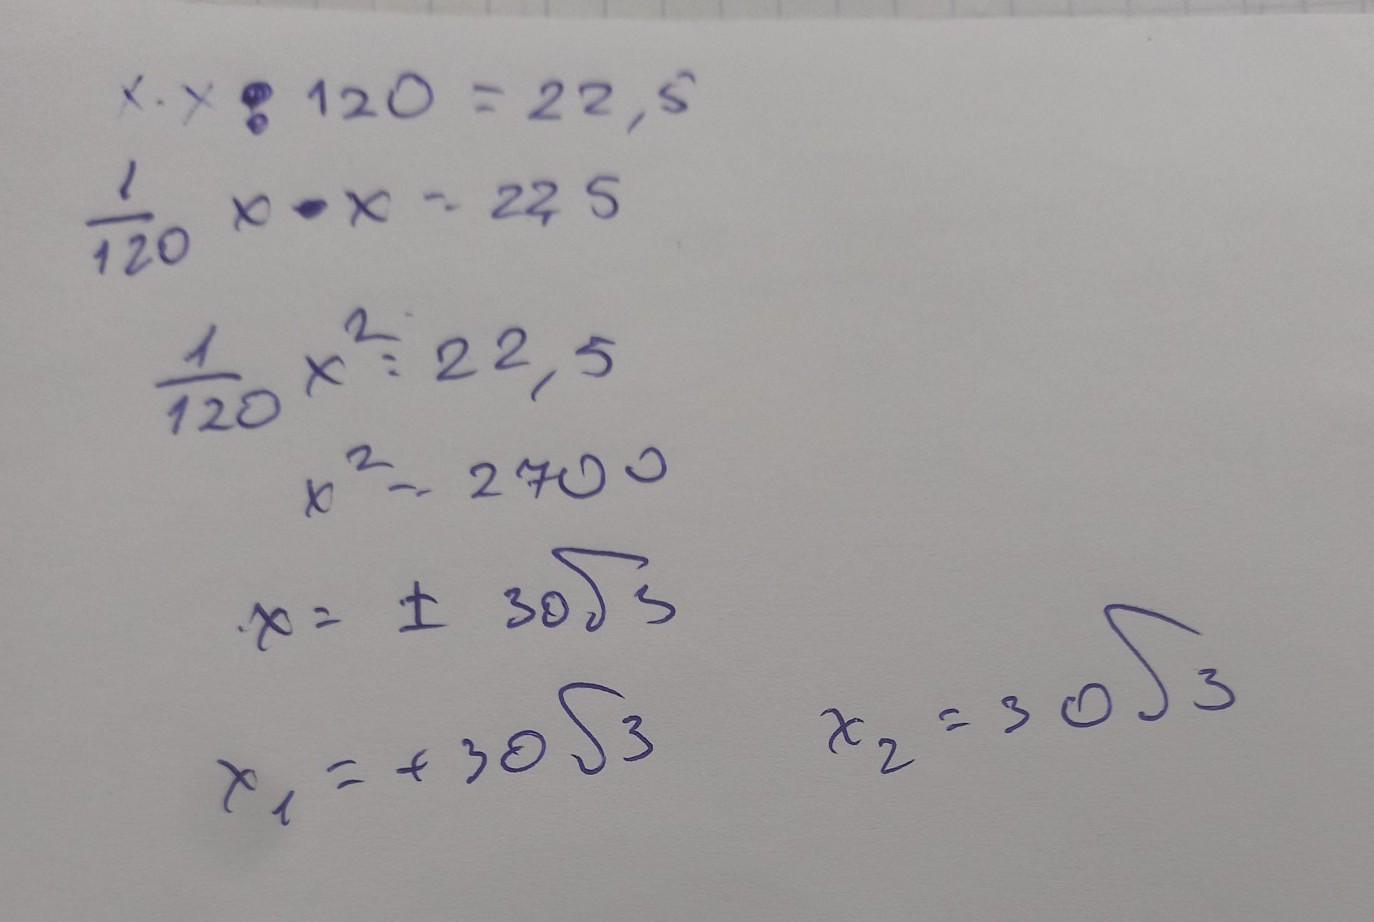 x·x : 120 = 22,5
1/120 x·x = 22,5
1/120 x² = 22,5
x² = 2700
x = ± 30√3
x₁ = +30√3 x₂ = 30√3